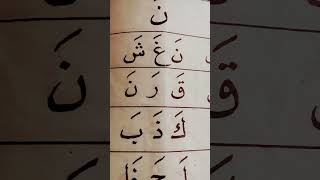 نَ
نَ غَ شَ
قَ رَ نَ
كَ ذَ بَ